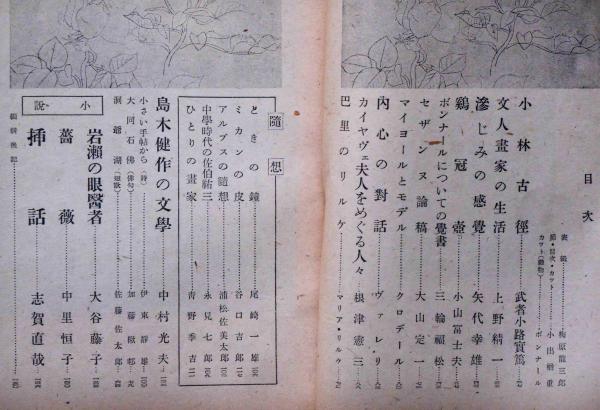 目次
表紙 梅原龍三郎
扉・目次・カット 小出楢重
カット(動物) ボンナール
小林古徑 武者小路實篤
文人畫家の生活 上野精一
滲じみの感覺 矢代幸雄
鷄冠壺 小山富士夫
ボンナールについての覺書 三輪福松
セザンヌ論稿 大山定一
マイヨールとモデル クロデール
內心の對話 ヴァレリ
カイヤヴェ夫人をめぐる人々 根津憲三
巴里のリルケ マリア・リルケ
隨想
ときの鐘 尾崎一雄
ミカンの皮 谷口吉郎
アルプスの隨想 浦松佐美太郎
中學時代の佐伯祐三 永見七郎
ひとりの畫家 靑野季吉
島木健作の文學 中村光夫
小さい手帖から(詩) 伊東靜雄
大同石佛(俳句) 加藤楸邨
洞爺湖(短歌) 佐藤佐太郎
小說
岩瀨の眼醫者 大谷藤子
薔薇 中里恒子
揷話 志賀直哉
編輯後記